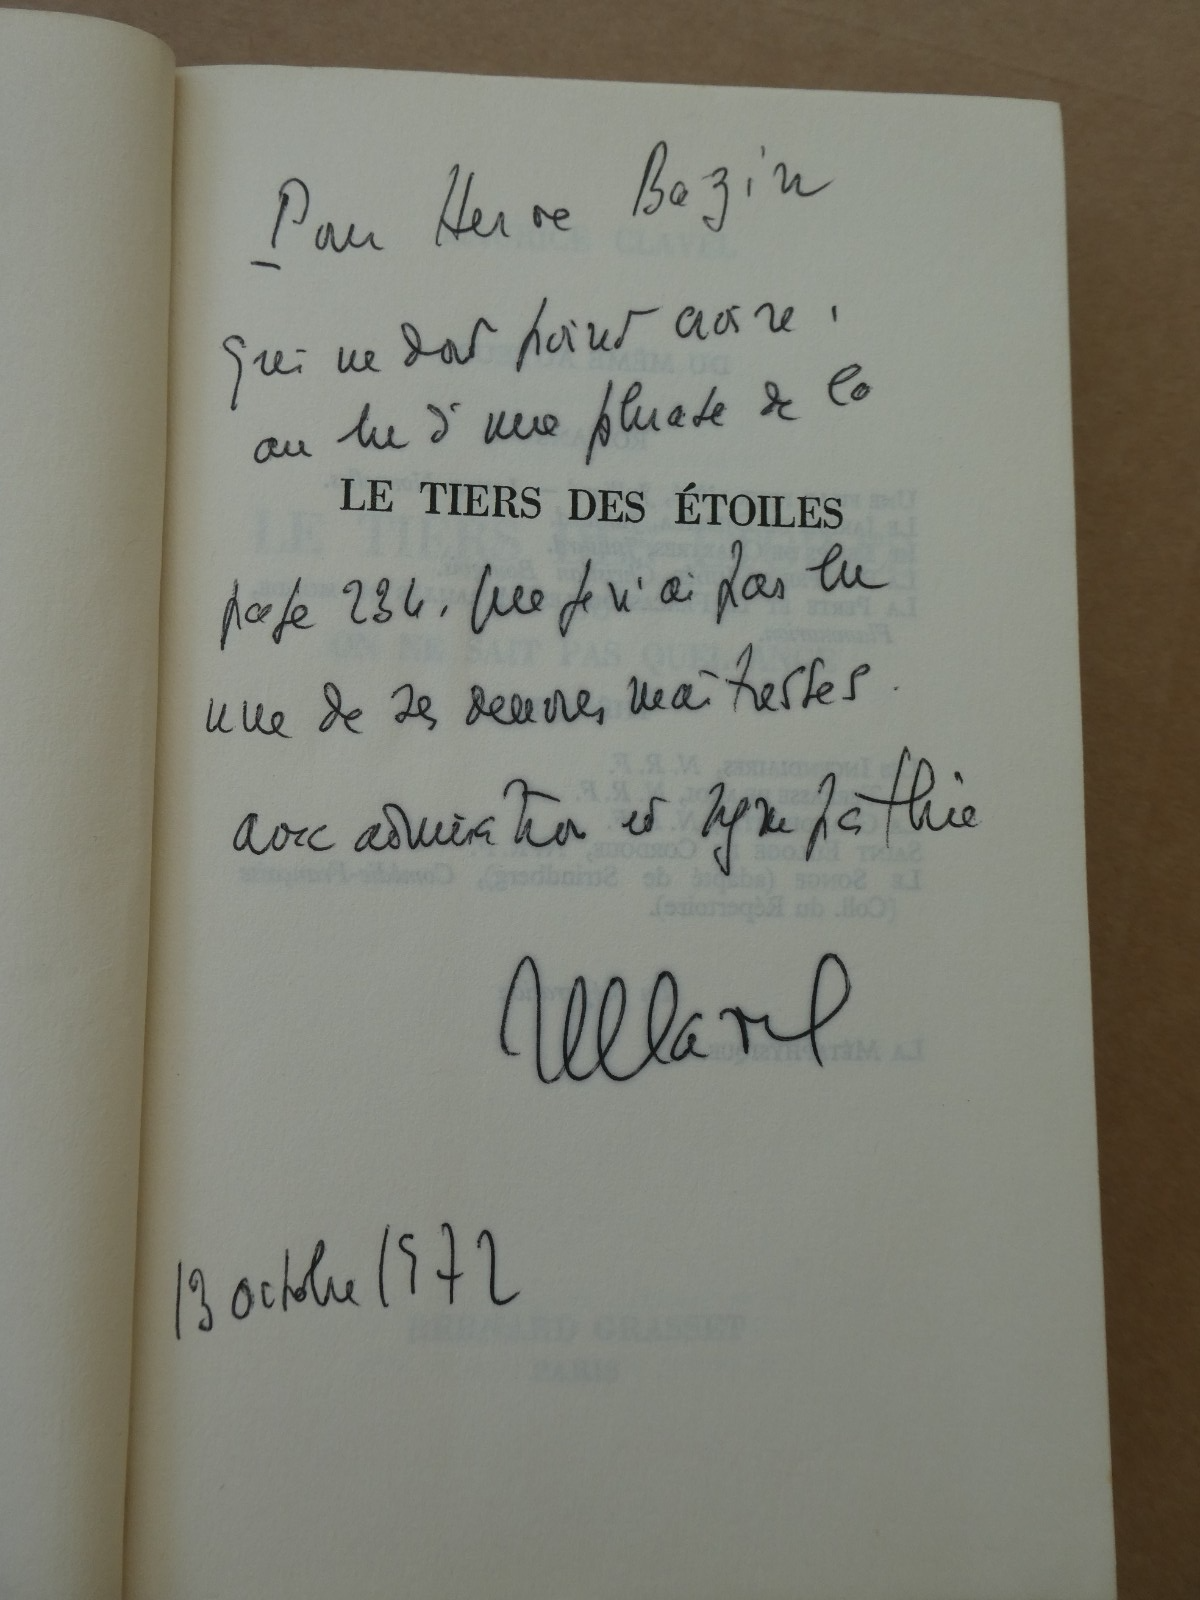 Pour Herve Bazin
qui ne doit point croire,
au lu d'une phrase de la
LE TIERS DES ÉTOILES
page 234, que je n'ai pas lu
une de ses œuvres maîtresses.
avec admiration et sympathie
MClavel
13 octobre 1972
BERNARD GRASSET
PARIS